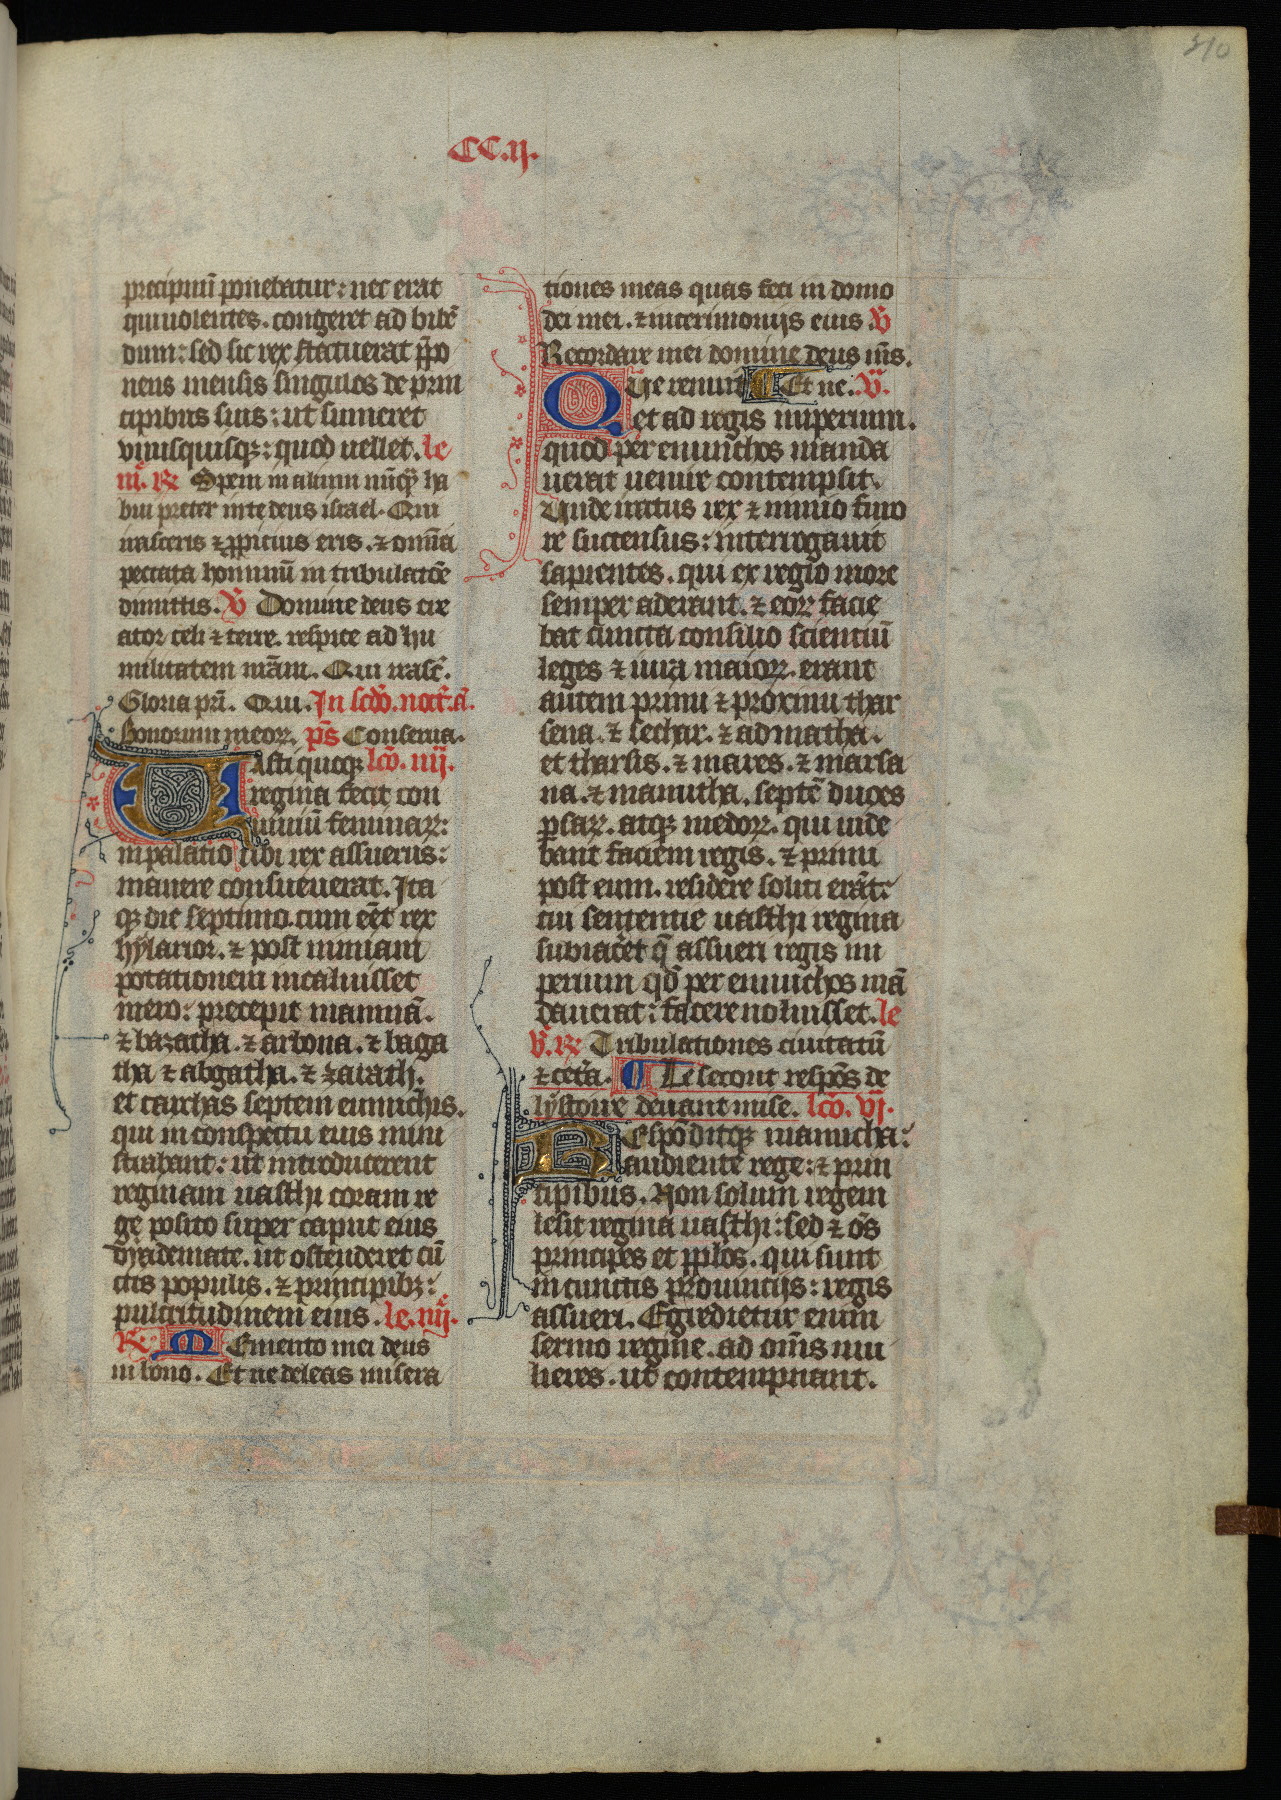 310
CC.ij.
precipuũ ponebatur: nec erat
qui nolentes. cogeret ad bibẽ
dum: sed sic rex statuerat ꝓpo
nens mensis singulos de prin
cipibus suis: ut sumeret
vnusquisqꝫ: quod uellet. le
iij. ℟ Spem in alium nũqᷓ ha
bui preter in te deus israel. Qui
irasceris ⁊ ꝓpicius eris. ⁊ omĩa
peccata hominũ in tribulatõe
dimittis. ℣ Domine deus cre
ator celi ⁊ terre. respice ad hu
militatem nr̃am. Qui irasc̃.
Gloria pr̃i. Qui. In scdõ. noct̃. ã.
Bonorum meoꝝ. ps̃ Conserua.
Vasti quoqꝫ lcõ. iiij.
regina fecit con
uiuiũ feminaꝝ:
in palatio ubi rex assuerus:
manere consueuerat. Ita
qꝫ die septimo. cum eẽt rex
hylarior. ⁊ post nimiam
potationem incaluisset
mero: precepit mamuã.
⁊ bazatha. ⁊ arbona. ⁊ baga
tha ⁊ abgatha. ⁊ zarath.
et carchas septem eunuchis.
qui in conspectu eius mini
strabant: ut introducerent
reginam uasthi coram re
ge posito super caput eius
dyademate. ut ostenderet cũ
ctis populis. ⁊ principibꝫ:
pulcritudinem eius. le. iiij.
℟. Memento mei deus
in bono. Et ne deleas misera
tiones meas quas feci in domo
dei mei. ⁊ in cerimonijs eius. ℣
Recordare mei domine deus mis.
Que renuit Et ne. ℣.
et ad regis imperium.
quod per eunuchos manda
uerat uenire contempsit.
Vnde iratus rex ⁊ nimio furo
re succensus: interrogauit
sapientes. qui ex regio more
semper aderant. ⁊ eoꝝ facie
bat cuncta consilio scientiũ
leges ⁊ iura maioꝝ. erant
autem primi ⁊ proximi thar
sena. ⁊ sechar. ⁊ admatha.
et tharsis. ⁊ mares. ⁊ marsa
na. ⁊ manutha. septẽ duces
ꝑsaꝝ. atqꝫ medoꝝ. qui uide
bant faciem regis. ⁊ primi
post eum. residere soliti erãt:
cui sententie uasthi regina
subiacẽt q̃ assueri regis im
perium qd̃ per eunuchos mã
dauerat: facere noluisset. le
v̾. ℟ Tribulationes ciuitatũ
⁊ cet̃a. Le secont respõs de
lystoire deuant mise. lcõ. vj.
Respõditqꝫ mamucha:
audiente rege: ⁊ prin
cipibus. Non solum regem
lesit regina uasthi: sed ⁊ õs
principes et pp̃los. qui sunt
in cunctis prouincijs: regis
assueri. Egredietur enim
sermo regine. ad om̃s mu
lieres. ut contempnant.